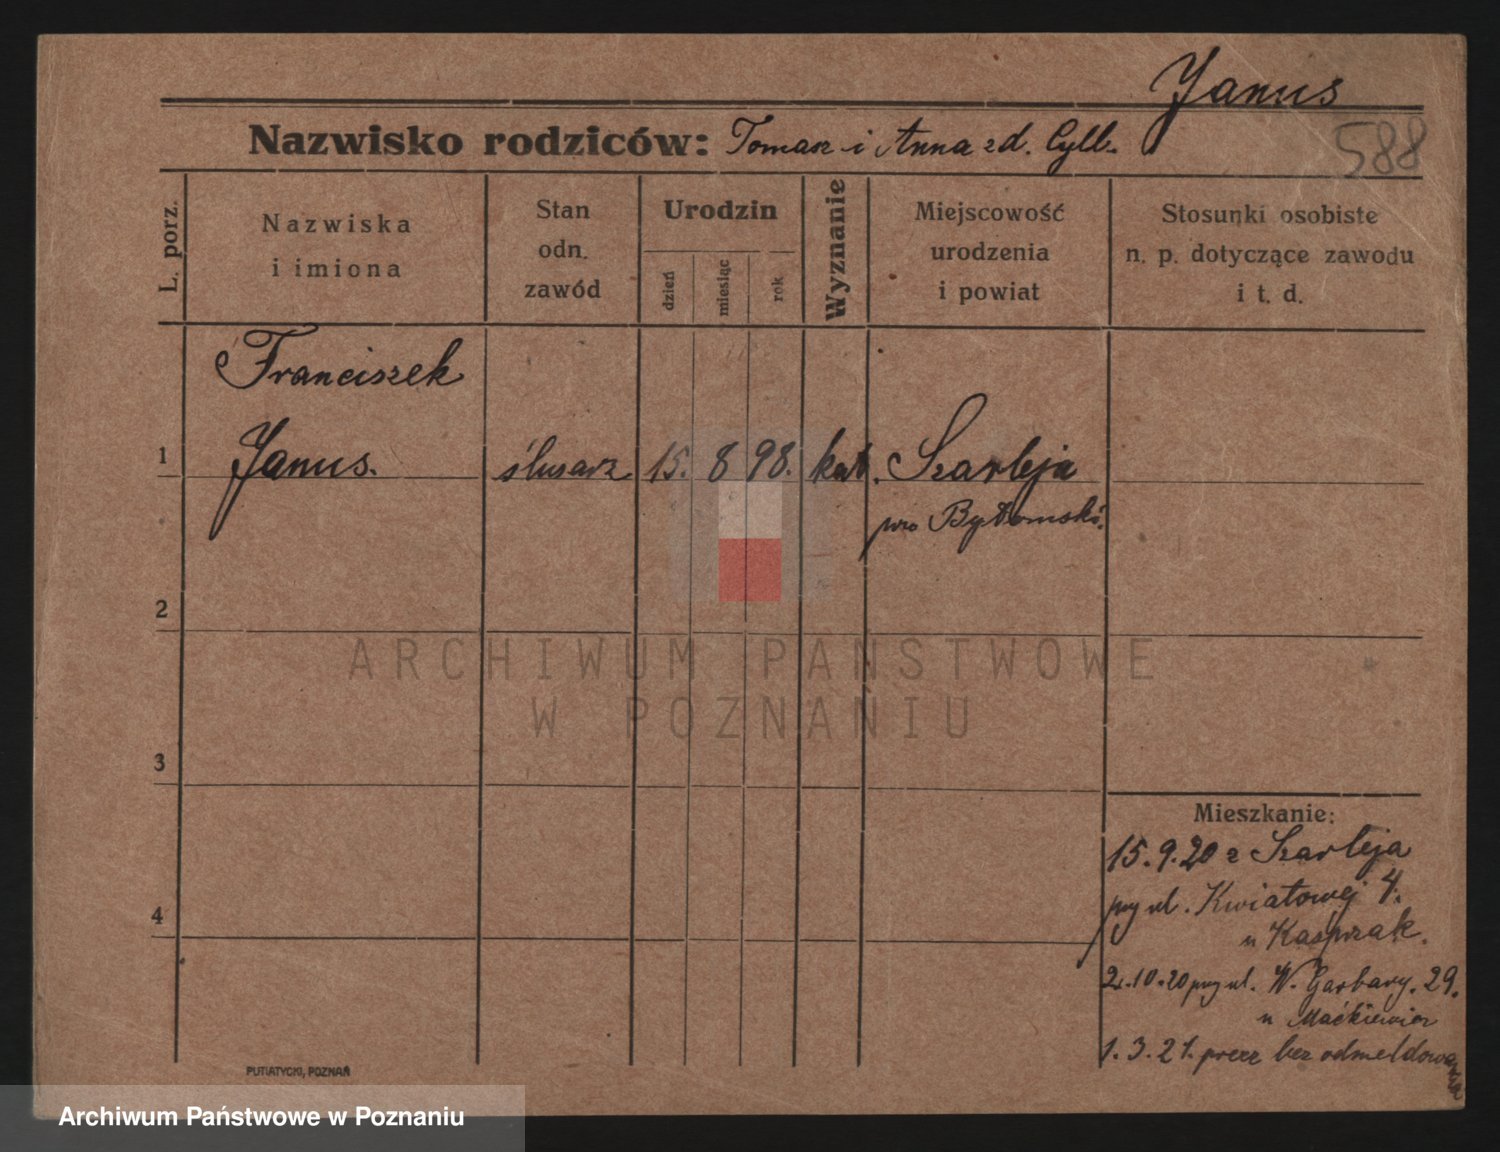 Janus
Nazwisko rodziców: Tomasz i Anna zd. Cyll.
588
L. porz.
Nazwiska
i imiona
Stan
odn.
zawód
Urodzin
dzień
miesiąc
rok
Wyznanie
Miejscowość
urodzenia
i powiat
Stosunki osobiste
n. p. dotyczące zawodu
i t. d.
Franciszek
1 Janus. ślusarz 15. 8 98. kat. Szarleja
pw. Bytomski.
2
ARCHIWUM PAŃSTWOWE
W POZNANIU
3
Mieszkanie:
15.9.20 z Szarleja
4 przy ul. Kwiatowej 4.
u Kasprzak.
2.10.20 przy ul. W. Garbary. 29.
u Maćkiewicz
1.3.21. precz bez odmeldowa
PUTIATYCKI, POZNAŃ
Archiwum Państwowe w Poznaniu